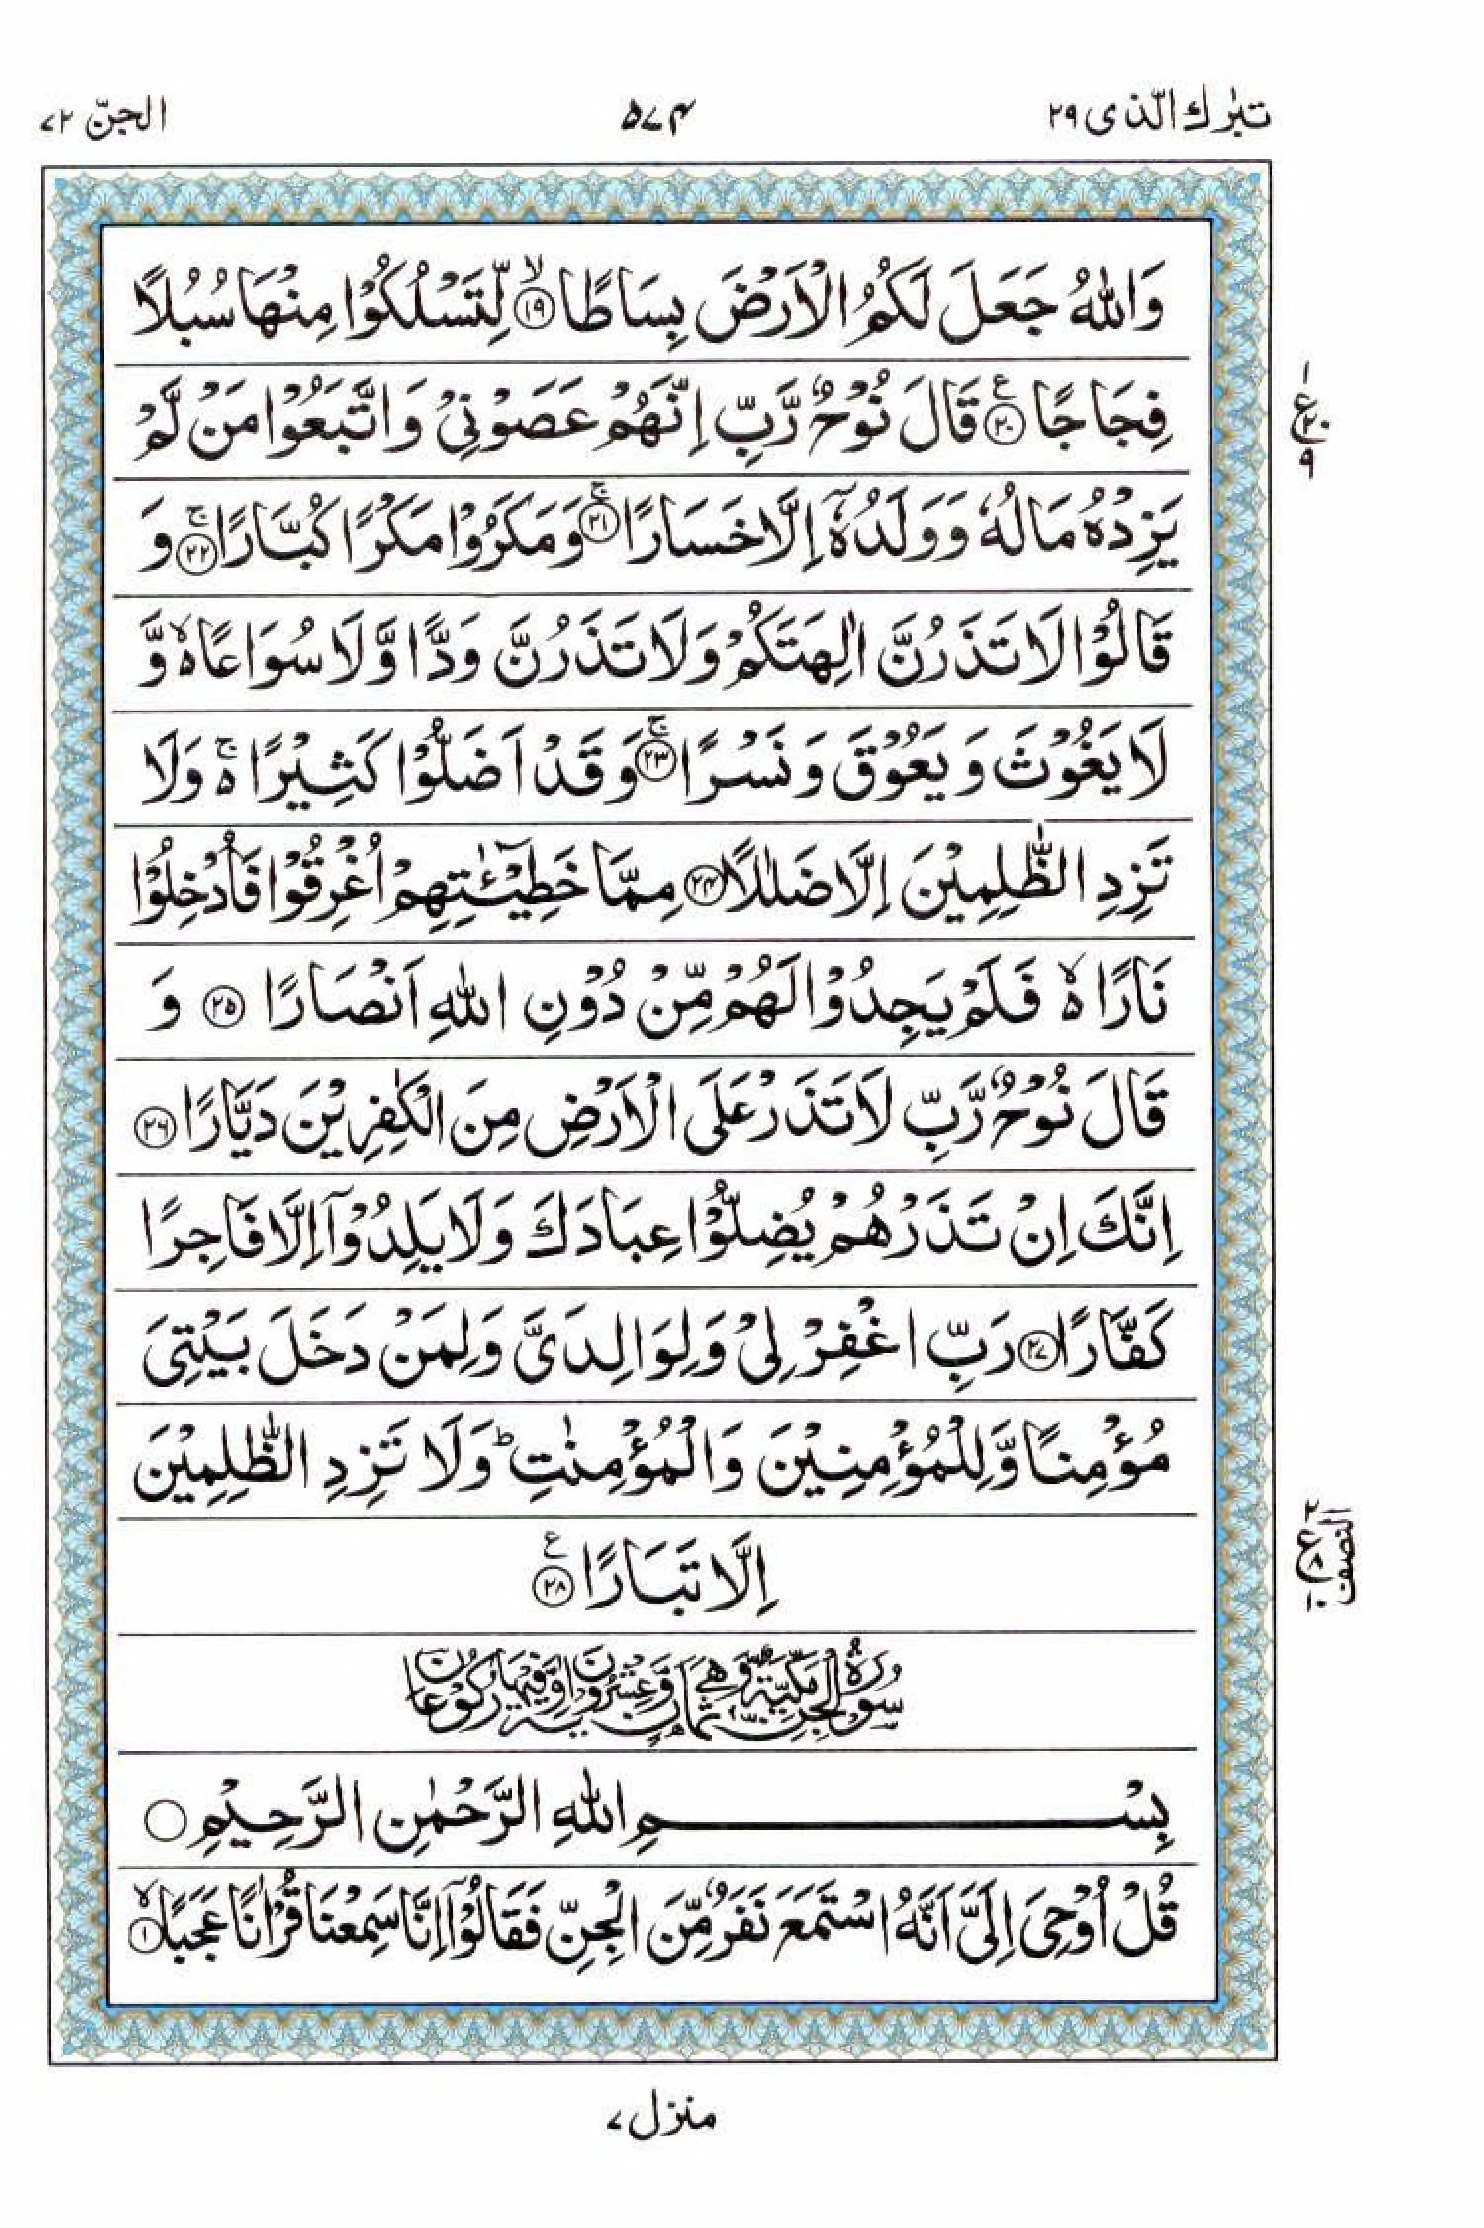 تبٰرك الّذی ٢٩
٥٧٤
الجنّ ٧٢
وَاللّٰهُ جَعَلَ لَكُمُ الْاَرْضَ بِسَاطًا ۙ﴿١٩﴾ لِّتَسْلُكُوْا مِنْهَا سُبُلًا
فِجَاجًا ۠﴿٢٠﴾ قَالَ نُوْحٌ رَّبِّ اِنَّهُمْ عَصَوْنِیْ وَاتَّبَعُوْا مَنْ لَّمْ
یَزِدْهُ مَالُهٗ وَوَلَدُهٗۤ اِلَّا خَسَارًا ۚ﴿٢١﴾ وَمَكَرُوْا مَكْرًا كُبَّارًا ۚ﴿٢٢﴾ وَ
قَالُوْا لَا تَذَرُنَّ اٰلِهَتَكُمْ وَلَا تَذَرُنَّ وَدًّا وَّلَا سُوَاعًا ۙ۬ وَّ
لَا یَغُوْثَ وَیَعُوْقَ وَنَسْرًا ۚ﴿٢٣﴾ وَقَدْ اَضَلُّوْا كَثِیْرًا ۚ۬ وَلَا
تَزِدِ الظّٰلِمِیْنَ اِلَّا ضَلٰلًا ﴿٢٤﴾ مِمَّا خَطِیْٓـٰٔتِهِمْ اُغْرِقُوْا فَاُدْخِلُوْا
نَارًا ۙ۬ فَلَمْ یَجِدُوْا لَهُمْ مِّنْ دُوْنِ اللّٰهِ اَنْصَارًا ﴿٢٥﴾ وَ
قَالَ نُوْحٌ رَّبِّ لَا تَذَرْ عَلَی الْاَرْضِ مِنَ الْكٰفِرِیْنَ دَیَّارًا ﴿٢٦﴾
اِنَّكَ اِنْ تَذَرْهُمْ یُضِلُّوْا عِبَادَكَ وَلَا یَلِدُوْۤا اِلَّا فَاجِرًا
كَفَّارًا ﴿٢٧﴾ رَبِّ اغْفِرْ لِیْ وَلِوَالِدَیَّ وَلِمَنْ دَخَلَ بَیْتِیَ
مُؤْمِنًا وَّلِلْمُؤْمِنِیْنَ وَالْمُؤْمِنٰتِ ؕ وَلَا تَزِدِ الظّٰلِمِیْنَ
اِلَّا تَبَارًا ۠﴿٢٨﴾
سُوْرَةُ الْجِنِّ مَكِّیَّةٌ وَّهِیَ ثَمَانٍ وَّعِشْرُوْنَ اٰیَةً وَّفِیْهَا رُكُوْعَانِ
بِسْمِ اللّٰهِ الرَّحْمٰنِ الرَّحِیْمِ ○
قُلْ اُوْحِیَ اِلَیَّ اَنَّهُ اسْتَمَعَ نَفَرٌ مِّنَ الْجِنِّ فَقَالُوْۤا اِنَّا سَمِعْنَا قُرْاٰنًا عَجَبًا ۙ﴿١﴾
١
ع ٢٠
٩
٢
ع ٨
١٠
النصف
منزل ٧